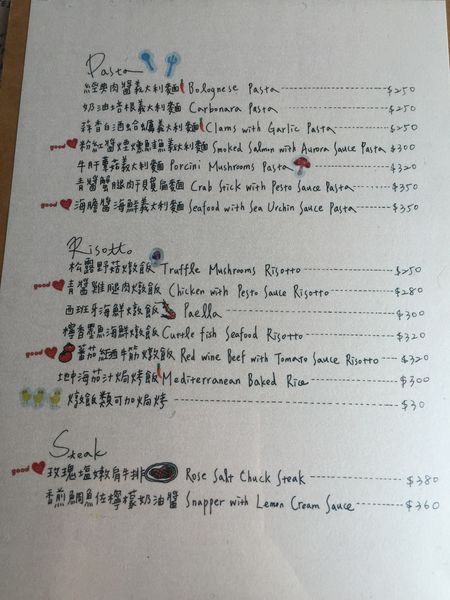 Pasta
經典肉醬義大利麵 Bolognese Pasta $250
奶油培根義大利麵 Carbonara Pasta $250
蒜香白酒蛤蠣義大利麵 Clams with Garlic Pasta $250
good 粉紅醬煙燻鮭魚義大利麵 Smoked Salmon with Aurora Sauce Pasta $300
牛肝蕈菇義大利麵 Porcini Mushrooms Pasta $320
青醬蟹腿肉干貝寬扁麵 Crab Stick with Pesto Sauce Pasta $350
good 海膽醬海鮮義大利麵 Seafood with Sea Urchin Sauce Pasta $350
Risotto
松露野菇燉飯 Truffle Mushrooms Risotto $250
good 青醬雞腿肉燉飯 Chicken with Pesto Sauce Risotto $280
西班牙海鮮燉飯 Paella $300
檸香墨魚海鮮燉飯 Cuttle fish Seafood Risotto $320
good 蕃茄紅酒牛筋燉飯 Red wine Beef with Tomato Sauce Risotto $320
地中海茄汁焗烤飯 Mediterranean Baked Rice $300
燉飯類可加焗烤 $30
Steak
good 玫瑰塩嫩肩牛排 Rose Salt Chuck Steak $380
香煎鯛魚佐檸檬奶油醬 Snapper with Lemon Cream Sauce $360